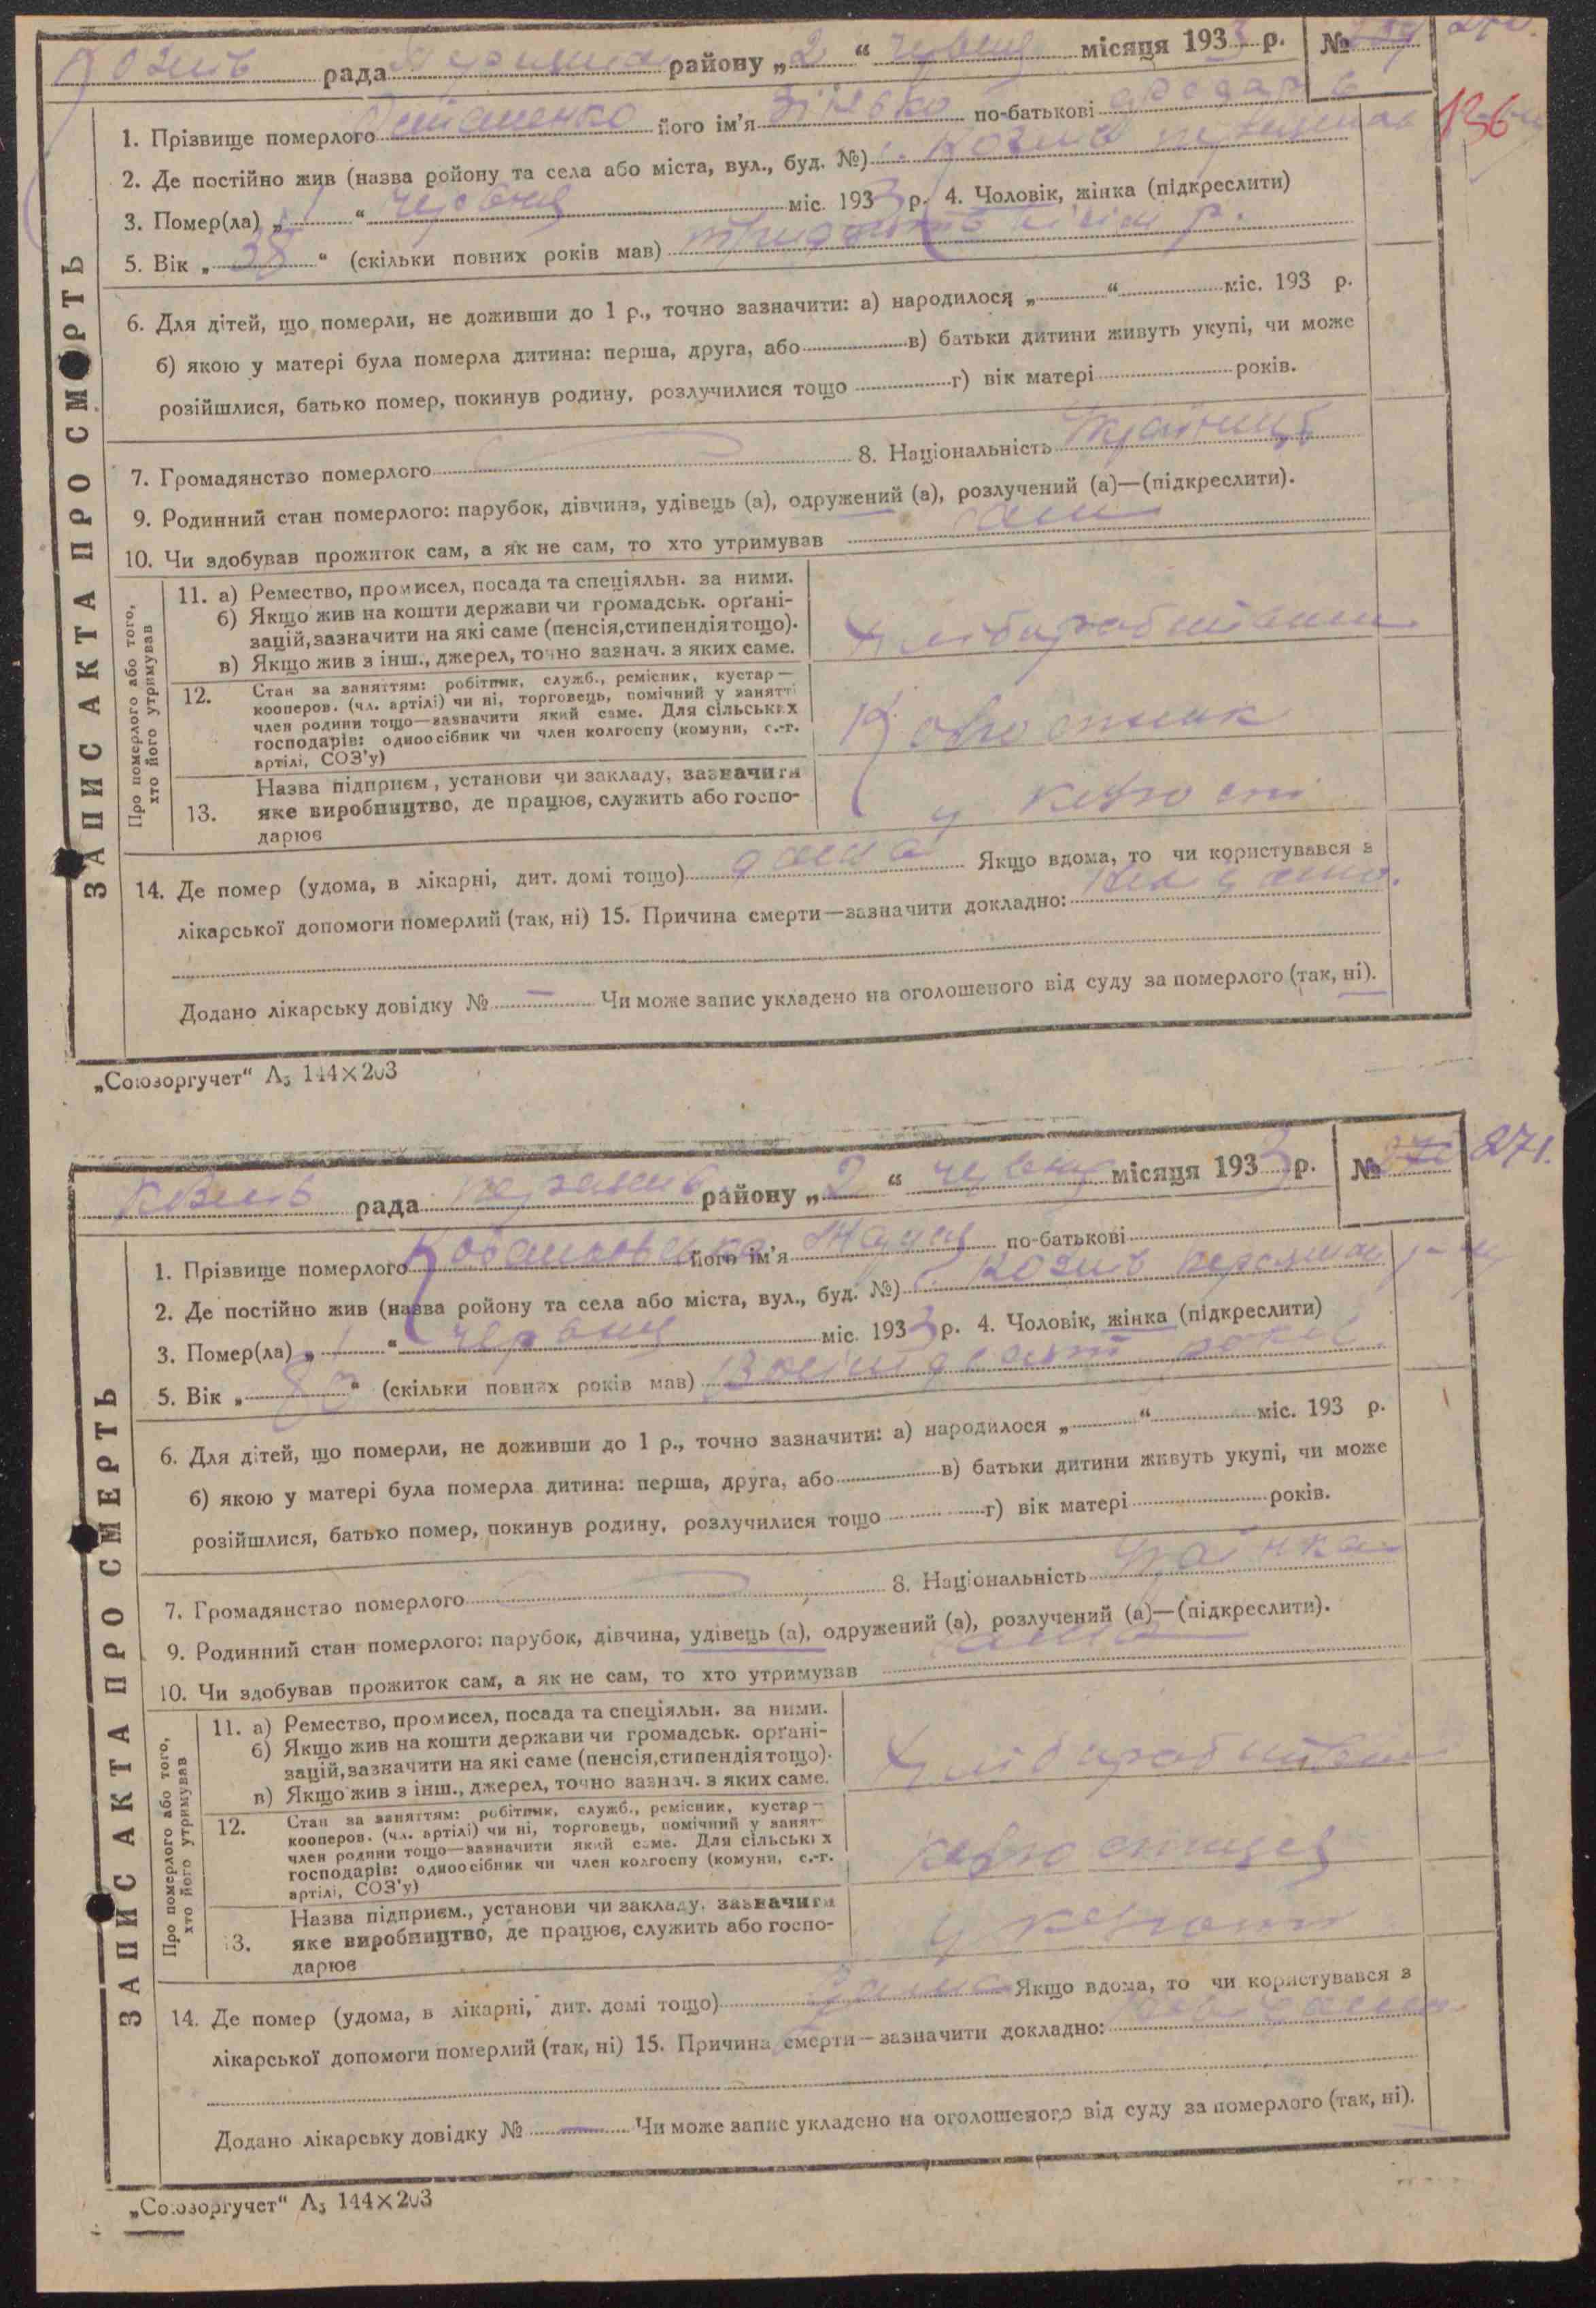 рада району „2“ червня місяця 1933 р. № 270.
136
1. Прізвище померлого його ім’я Зінько по-батькові
2. Де постійно жив (назва ройону та села або міста, вул., буд. №)
3. Помер(ла) „1“ червня міс. 1933 р. 4. Чоловік, жінка (підкреслити)
5. Вік „38“ (скільки повних років мав) р.
6. Для дітей, що померли, не доживши до 1 р., точно зазначити: а) народилося „ “ міс. 193 р.
б) якою у матері була померла дитина: перша, друга, або в) батьки дитини живуть укупі, чи може
розійшлися, батько помер, покинув родину, розлучилися тощо г) вік матері років.
7. Громадянство померлого 8. Національність
9. Родинний стан померлого: парубок, дівчина, удівець (а), одружений (а), розлучений (а)—(підкреслити).
10. Чи здобував прожиток сам, а як не сам, то хто утримував сам
ЗАПИС АКТА ПРО СМЕРТЬ
Про померлого або того,
хто його утримував
11. а) Ремество, промисел, посада та спеціяльн. за ними.
б) Якщо жив на кошти держави чи громадськ. органі-
зацій, зазначити на які саме (пенсія, стипендія тощо).
в) Якщо жив з інш., джерел, точно зазнач. з яких саме.
12. Стан за заняттям: робітник, служб., ремісник, кустар—
кооперов. (чл. артілі) чи ні, торговець, помічний у занятті
член родини тощо—зазначити який саме. Для сільських
господарів: одноосібник чи член колгоспу (комуни, с.-г.
артілі, СОЗ’у)
13. Назва підприєм., установи чи закладу, зазначити
яке виробництво, де працює, служить або госпо-
дарює
14. Де помер (удома, в лікарні, дит. домі тощо) дома Якщо вдома, то чи користувався з
лікарської допомоги померлий (так, ні) 15. Причина смерти—зазначити докладно:
Додано лікарську довідку № — Чи може запис укладено на оголошеного від суду за померлого (так, ні).
„Союзоргучет“ А₅ 144×203
рада району „2“ червня місяця 1933 р. № 271.
1. Прізвище померлого його ім’я по-батькові
2. Де постійно жив (назва ройону та села або міста, вул., буд. №) с.
3. Помер(ла) „1“ червня міс. 1933 р. 4. Чоловік, жінка (підкреслити)
5. Вік „80“ (скільки повних років мав) Вісімдесят років
6. Для дітей, що померли, не доживши до 1 р., точно зазначити: а) народилося „ “ міс. 193 р.
б) якою у матері була померла дитина: перша, друга, або в) батьки дитини живуть укупі, чи може
розійшлися, батько помер, покинув родину, розлучилися тощо г) вік матері років.
7. Громадянство померлого 8. Національність
9. Родинний стан померлого: парубок, дівчина, удівець (а), одружений (а), розлучений (а)—(підкреслити).
10. Чи здобував прожиток сам, а як не сам, то хто утримував сама
ЗАПИС АКТА ПРО СМЕРТЬ
Про померлого або того,
хто його утримував
11. а) Ремество, промисел, посада та спеціяльн. за ними.
б) Якщо жив на кошти держави чи громадськ. органі-
зацій, зазначити на які саме (пенсія, стипендія тощо).
в) Якщо жив з інш., джерел, точно зазнач. з яких саме.
12. Стан за заняттям: робітник, служб., ремісник, кустар—
кооперов. (чл. артілі) чи ні, торговець, помічний у занят-
член родини тощо—зазначити який саме. Для сільських
господарів: одноосібник чи член колгоспу (комуни, с.-г.
артілі, СОЗ’у)
13. Назва підприєм., установи чи закладу, зазначити
яке виробництво, де працює, служить або госпо-
дарює
14. Де помер (удома, в лікарні, дит. домі тощо) дома Якщо вдома, то чи користувався з
лікарської допомоги померлий (так, ні) 15. Причина смерти—зазначити докладно:
Додано лікарську довідку № — Чи може запис укладено на оголошеного від суду за померлого (так, ні).
„Союзоргучет“ А₅ 144×203